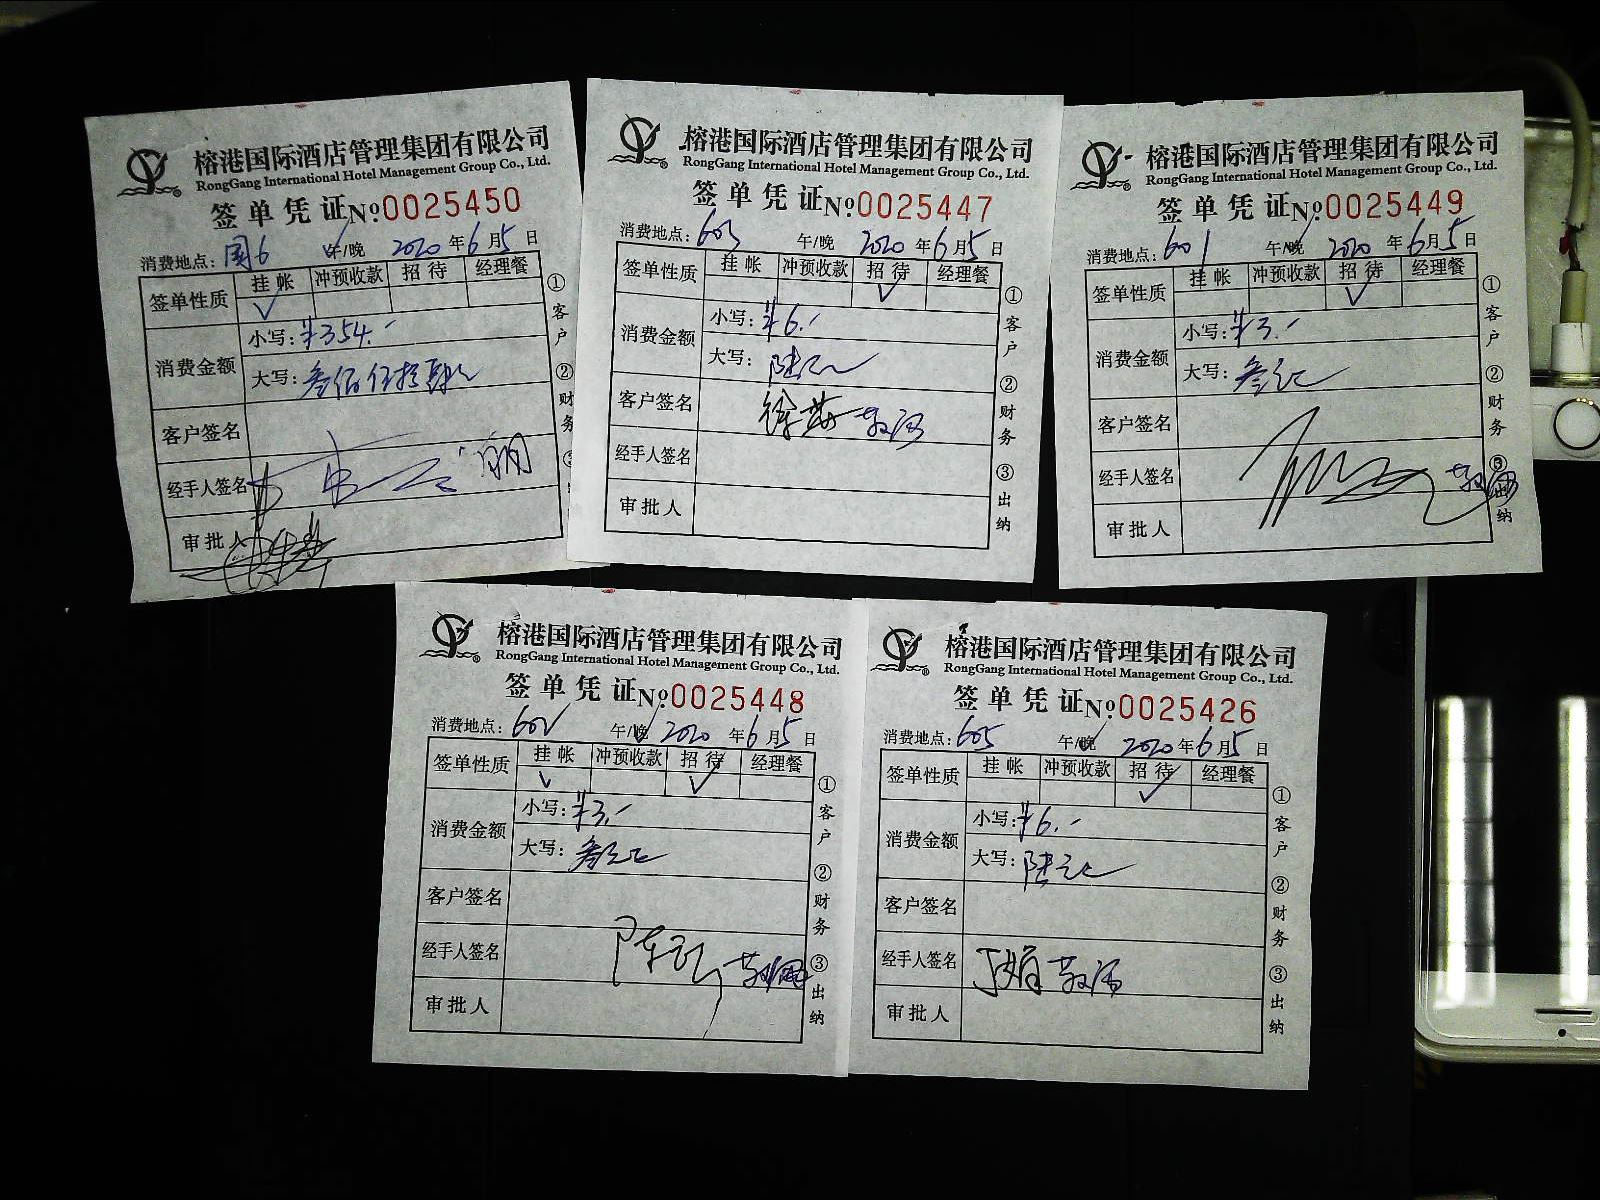 榕港国际酒店管理集团有限公司
RongGang International Hotel Management Group Co., Ltd.
签单凭证 №:0025450
消费地点: 国6 午/晚 2020年6月5日
签单性质 挂帐 冲预收款 招待 经理餐
✓
消费金额 小写: ¥354.-
大写: 叁佰伍拾肆元
客户签名
经手人签名
审批人
①客户 ②财务
榕港国际酒店管理集团有限公司
RongGang International Hotel Management Group Co., Ltd.
签单凭证 №:0025447
消费地点: 603 午/晚 2020年6月5日
签单性质 挂帐 冲预收款 招待 经理餐
✓
消费金额 小写: ¥6.-
大写: 陆元
客户签名
经手人签名
审批人
①客户 ②财务 ③出纳
榕港国际酒店管理集团有限公司
RongGang International Hotel Management Group Co., Ltd.
签单凭证 №:0025449
消费地点: 601 午/晚 2020年6月5日
签单性质 挂帐 冲预收款 招待 经理餐
✓
消费金额 小写: ¥3.-
大写: 叁元
客户签名
经手人签名
审批人
①客户 ②财务 ③出纳
榕港国际酒店管理集团有限公司
RongGang International Hotel Management Group Co., Ltd.
签单凭证 №:0025448
消费地点: 602 午/晚 2020年6月5日
签单性质 挂帐 冲预收款 招待 经理餐
✓ ✓
消费金额 小写: ¥3.-
大写: 叁元
客户签名
经手人签名
审批人
①客户 ②财务 ③出纳
榕港国际酒店管理集团有限公司
RongGang International Hotel Management Group Co., Ltd.
签单凭证 №:0025426
消费地点: 605 午/晚 2020年6月5日
签单性质 挂帐 冲预收款 招待 经理餐
✓
消费金额 小写: ¥6.-
大写: 陆元
客户签名
经手人签名
审批人
①客户 ②财务 ③出纳